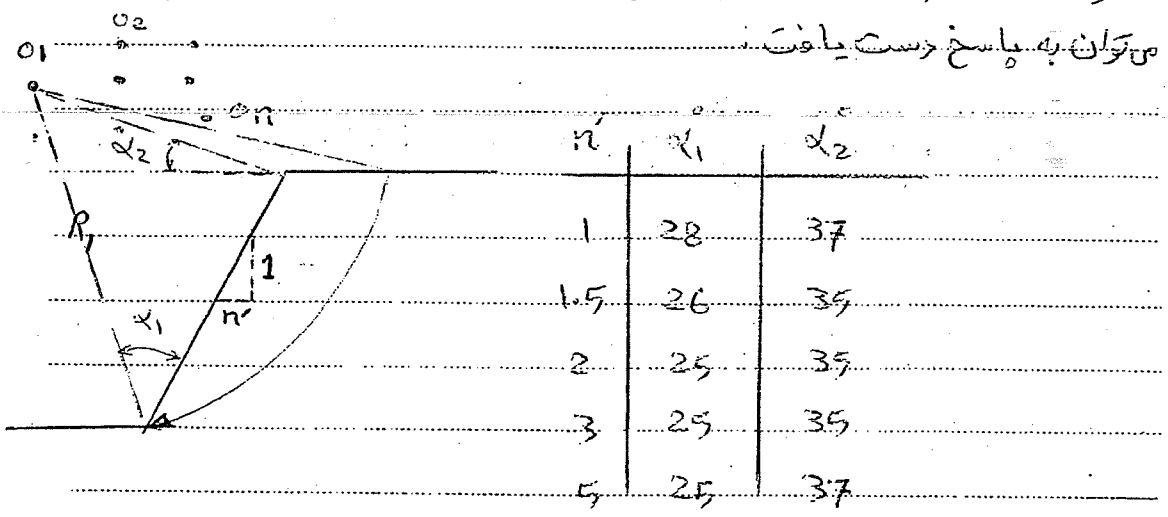 می‌توان به پاسخ دست یافت :
O1 O2
On
α2
R1
α1
1
n'
n' α1° α2°
1 28 37
1.5 26 35
2 25 35
3 25 35
5 25 37